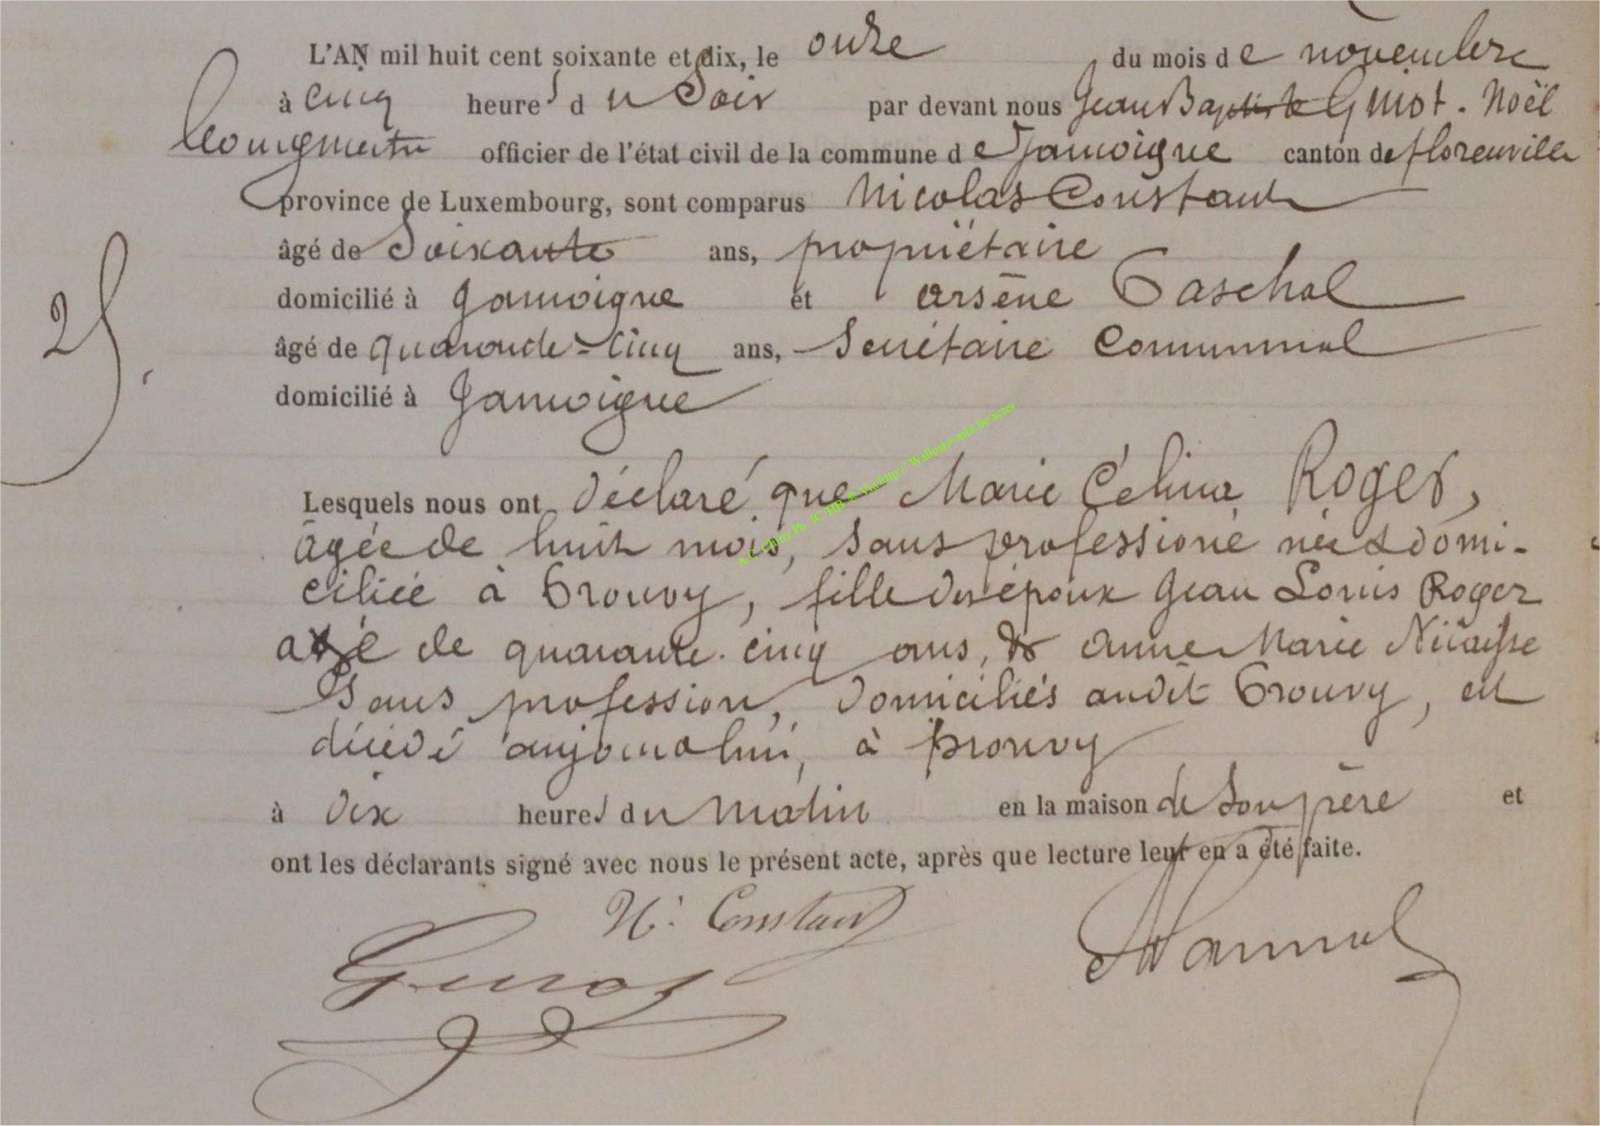 L'AN mil huit cent soixante et dix, le onze du mois de novembre
à cinq heures du Soir par devant nous Jean Baptiste Guiot. Noël
officier de l'état civil de la commune de Jamoigne canton de florenville
province de Luxembourg, sont comparus Nicolas Constant
âgé de Soixante ans, propriétaire
domicilié à Jamoigne et arsène Paschal
âgé de quarante-cinq ans, Secrétaire Communal
domicilié à Jamoigne
25.
Lesquels nous ont déclaré que Marie Célina Roger,
agée de huit mois, sans profession née & domi-
ciliée à Prouvy, fille des époux Jean Louis Roger
agé de quarante-cinq ans, & anne Marie Nicaysse
Sans profession, domiciliés audit Prouvy, est
décédé aujourdhui, à prouvy
à dix heures du Matin en la maison de Son père et
ont les déclarants signé avec nous le présent acte, après que lecture leur en a été faite.
N. Constant